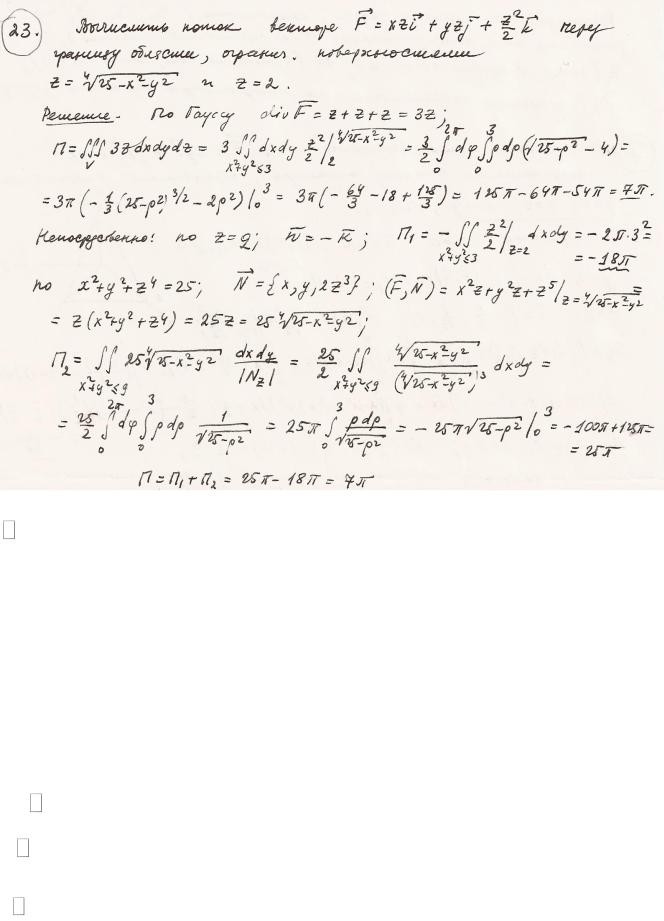 23. Вычислить поток вектора F⃗ = xz i⃗ + yz j⃗ + z²/2 k⃗ через
границу области, огранич. поверхностями
z = ⁴√(25-x²-y²) и z = 2.
Решение. По Гауссу div F⃗ = z + z + z = 3z;
П = ∭_V 3z dxdydz = 3 ∬_{x²+y²≤3} dxdy z²/2 |_2^{⁴√(25-x²-y²)} = 3/2 ∫_0^{2π} dφ ∫_0^3 ρdρ(√(25-ρ²) - 4) =
= 3π(-1/3 (25-ρ²)^{3/2} - 2ρ²)|_0^3 = 3π(-64/3 - 18 + 125/3) = 125π - 64π - 54π = 7π.
Непосредственно: по z = 2; n⃗ = -k⃗; П₁ = -∬_{x²+y²≤3} z²/2 |_{z=2} dxdy = -2π·3² =
= -18π
по x²+y²+z⁴ = 25; N⃗ = {x, y, 2z³}; (F⃗, N⃗) = x²z + y²z + z⁵ |_{z=⁴√(25-x²-y²)} =
= z(x²+y²+z⁴) = 25z = 25 ⁴√(25-x²-y²);
П₂ = ∬_{x²+y²≤9} 25 ⁴√(25-x²-y²) dxdy/|N_z| = 25/2 ∬_{x²+y²≤9} ⁴√(25-x²-y²)/(⁴√(25-x²-y²))³ dxdy =
= 25/2 ∫_0^{2π} dφ ∫_0^3 ρdρ 1/√(25-ρ²) = 25π ∫_0^3 ρdρ/√(25-ρ²) = -25π√(25-ρ²) |_0^3 = -100π + 125π =
= 25π
П = П₁ + П₂ = 25π - 18π = 7π